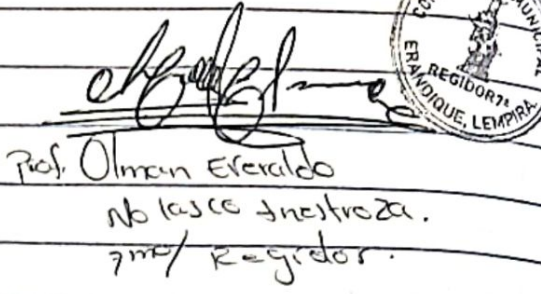 MUNICIPAL
REGIDOR 7º
ERANDIQUE, LEMPIRA
Prof. Olman Everaldo
Nolasco Inestroza.
7mo/ Regidor.